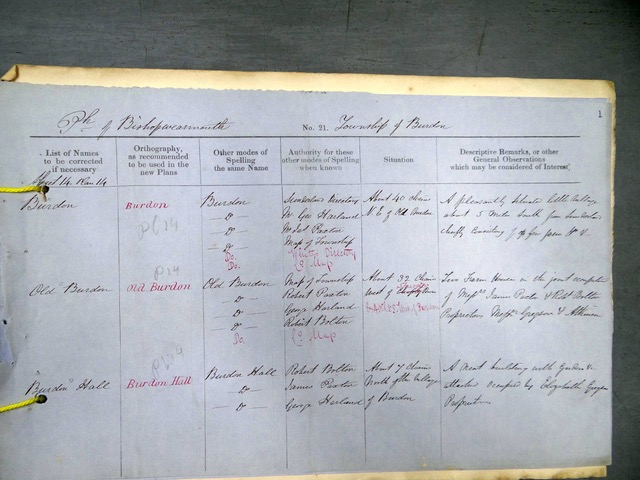 1
Ph of Bishopwearmouth No. 21. Township of Burdon
List of Names to be corrected if necessary
Orthography, as recommended to be used in the new Plans
Other modes of Spelling the same Name
Authority for these other modes of Spelling when known
Situation
Descriptive Remarks, or other General Observations which may be considered of Interest
Sheet 14. Plan 14
Burdon
Burdon
Pl 14
Burdon
Do
Do
Do
Do.
Do.
Sunderland Directory
Mr Geo Harland
Mr Jas Paxton
Map of Township
County Directory
Co Map
About 40 chains
N.E of Old Burdon
A pleasantly situate little village
about 5 miles South from Sunderland
chiefly consisting of
Old Burdon
Pl 14
Old Burdon
Old Burdon
Do
Do
Do
Do.
Map of Township
Robert Paxton
George Harland
Robert Bolton
Co Map
About 32 Chains
West of
Two Farm Houses in the joint occupation
of Messrs James Paxton & Robt Bolton
Proprietors Messrs Grayson & Atkinson
Burdon Hall
Pl 14
Burdon Hall
Burdon Hall
Do
Do
Robert Bolton
James Paxton
George Harland
About 7 chains
North of the Village
of Burdon
A Neat building with Garden &
attached occupied by Elizabeth Grayson